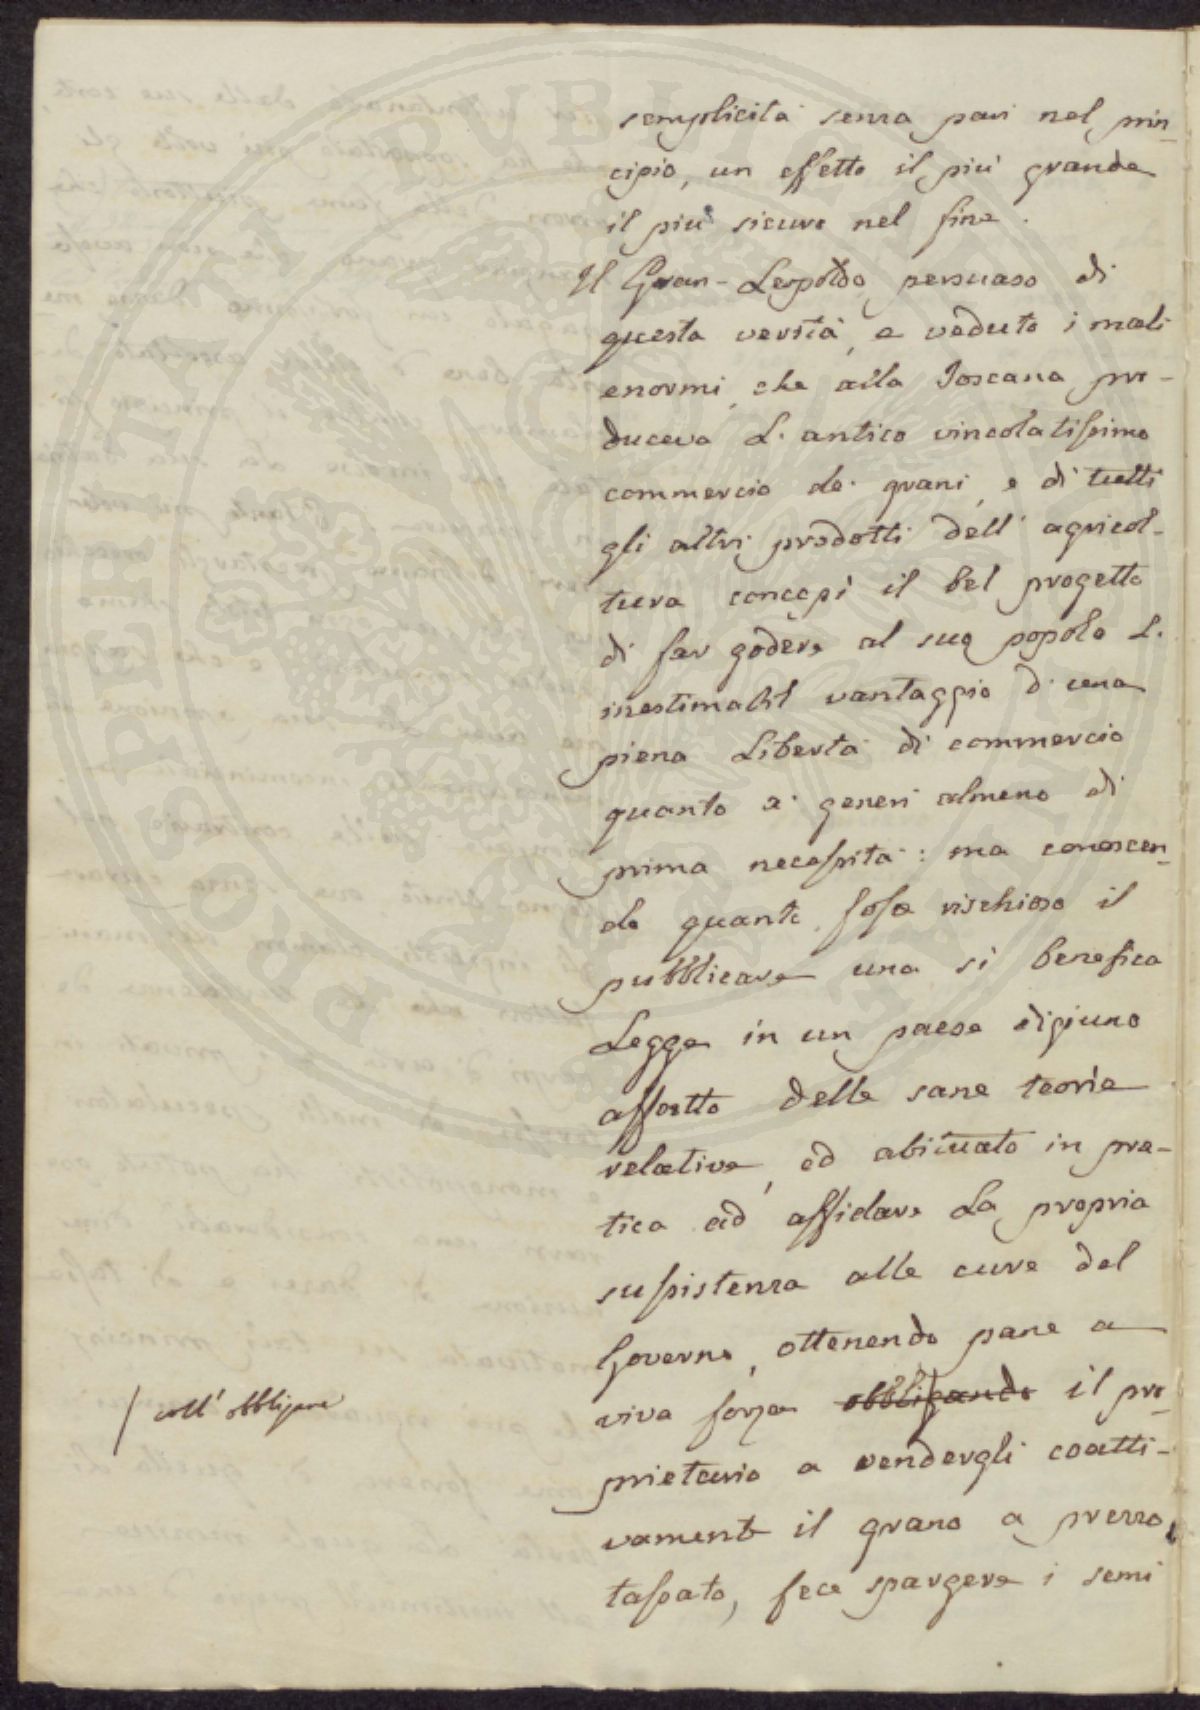 semplicità senza pari nel prin-
cipio, un effetto il più grande
il più sicuro nel fine.
Il Gran-Leopoldo persuaso di
questa verità, e veduto i mali
enormi, che alla Toscana pro-
duceva L'antico vincolatissimo
commercio de' grani, e di tutti
gli altri prodotti dell'agricol-
tura concepì il bel progetto
di far godere al suo popolo L'
inestimabil vantaggio d'una
piena Libertà di commercio
quanto a' generi almeno di
prima necessità: ma conoscen-
do quanto fosse rischioso il
pubblicare una sì benefica
Legge in un paese digiuno
affatto delle sane teorie
relative, ed abituato in pra-
tica ad affidare La propria
sussistenza alle cure del
Governo, ottenendo pane a
viva forza obbligando il pro-
/ coll'obbligare
prietario a vendergli coatti-
vamente il grano a prezzo
tassato, fece spargere i semi
PROSPERITATI PUBLICAE